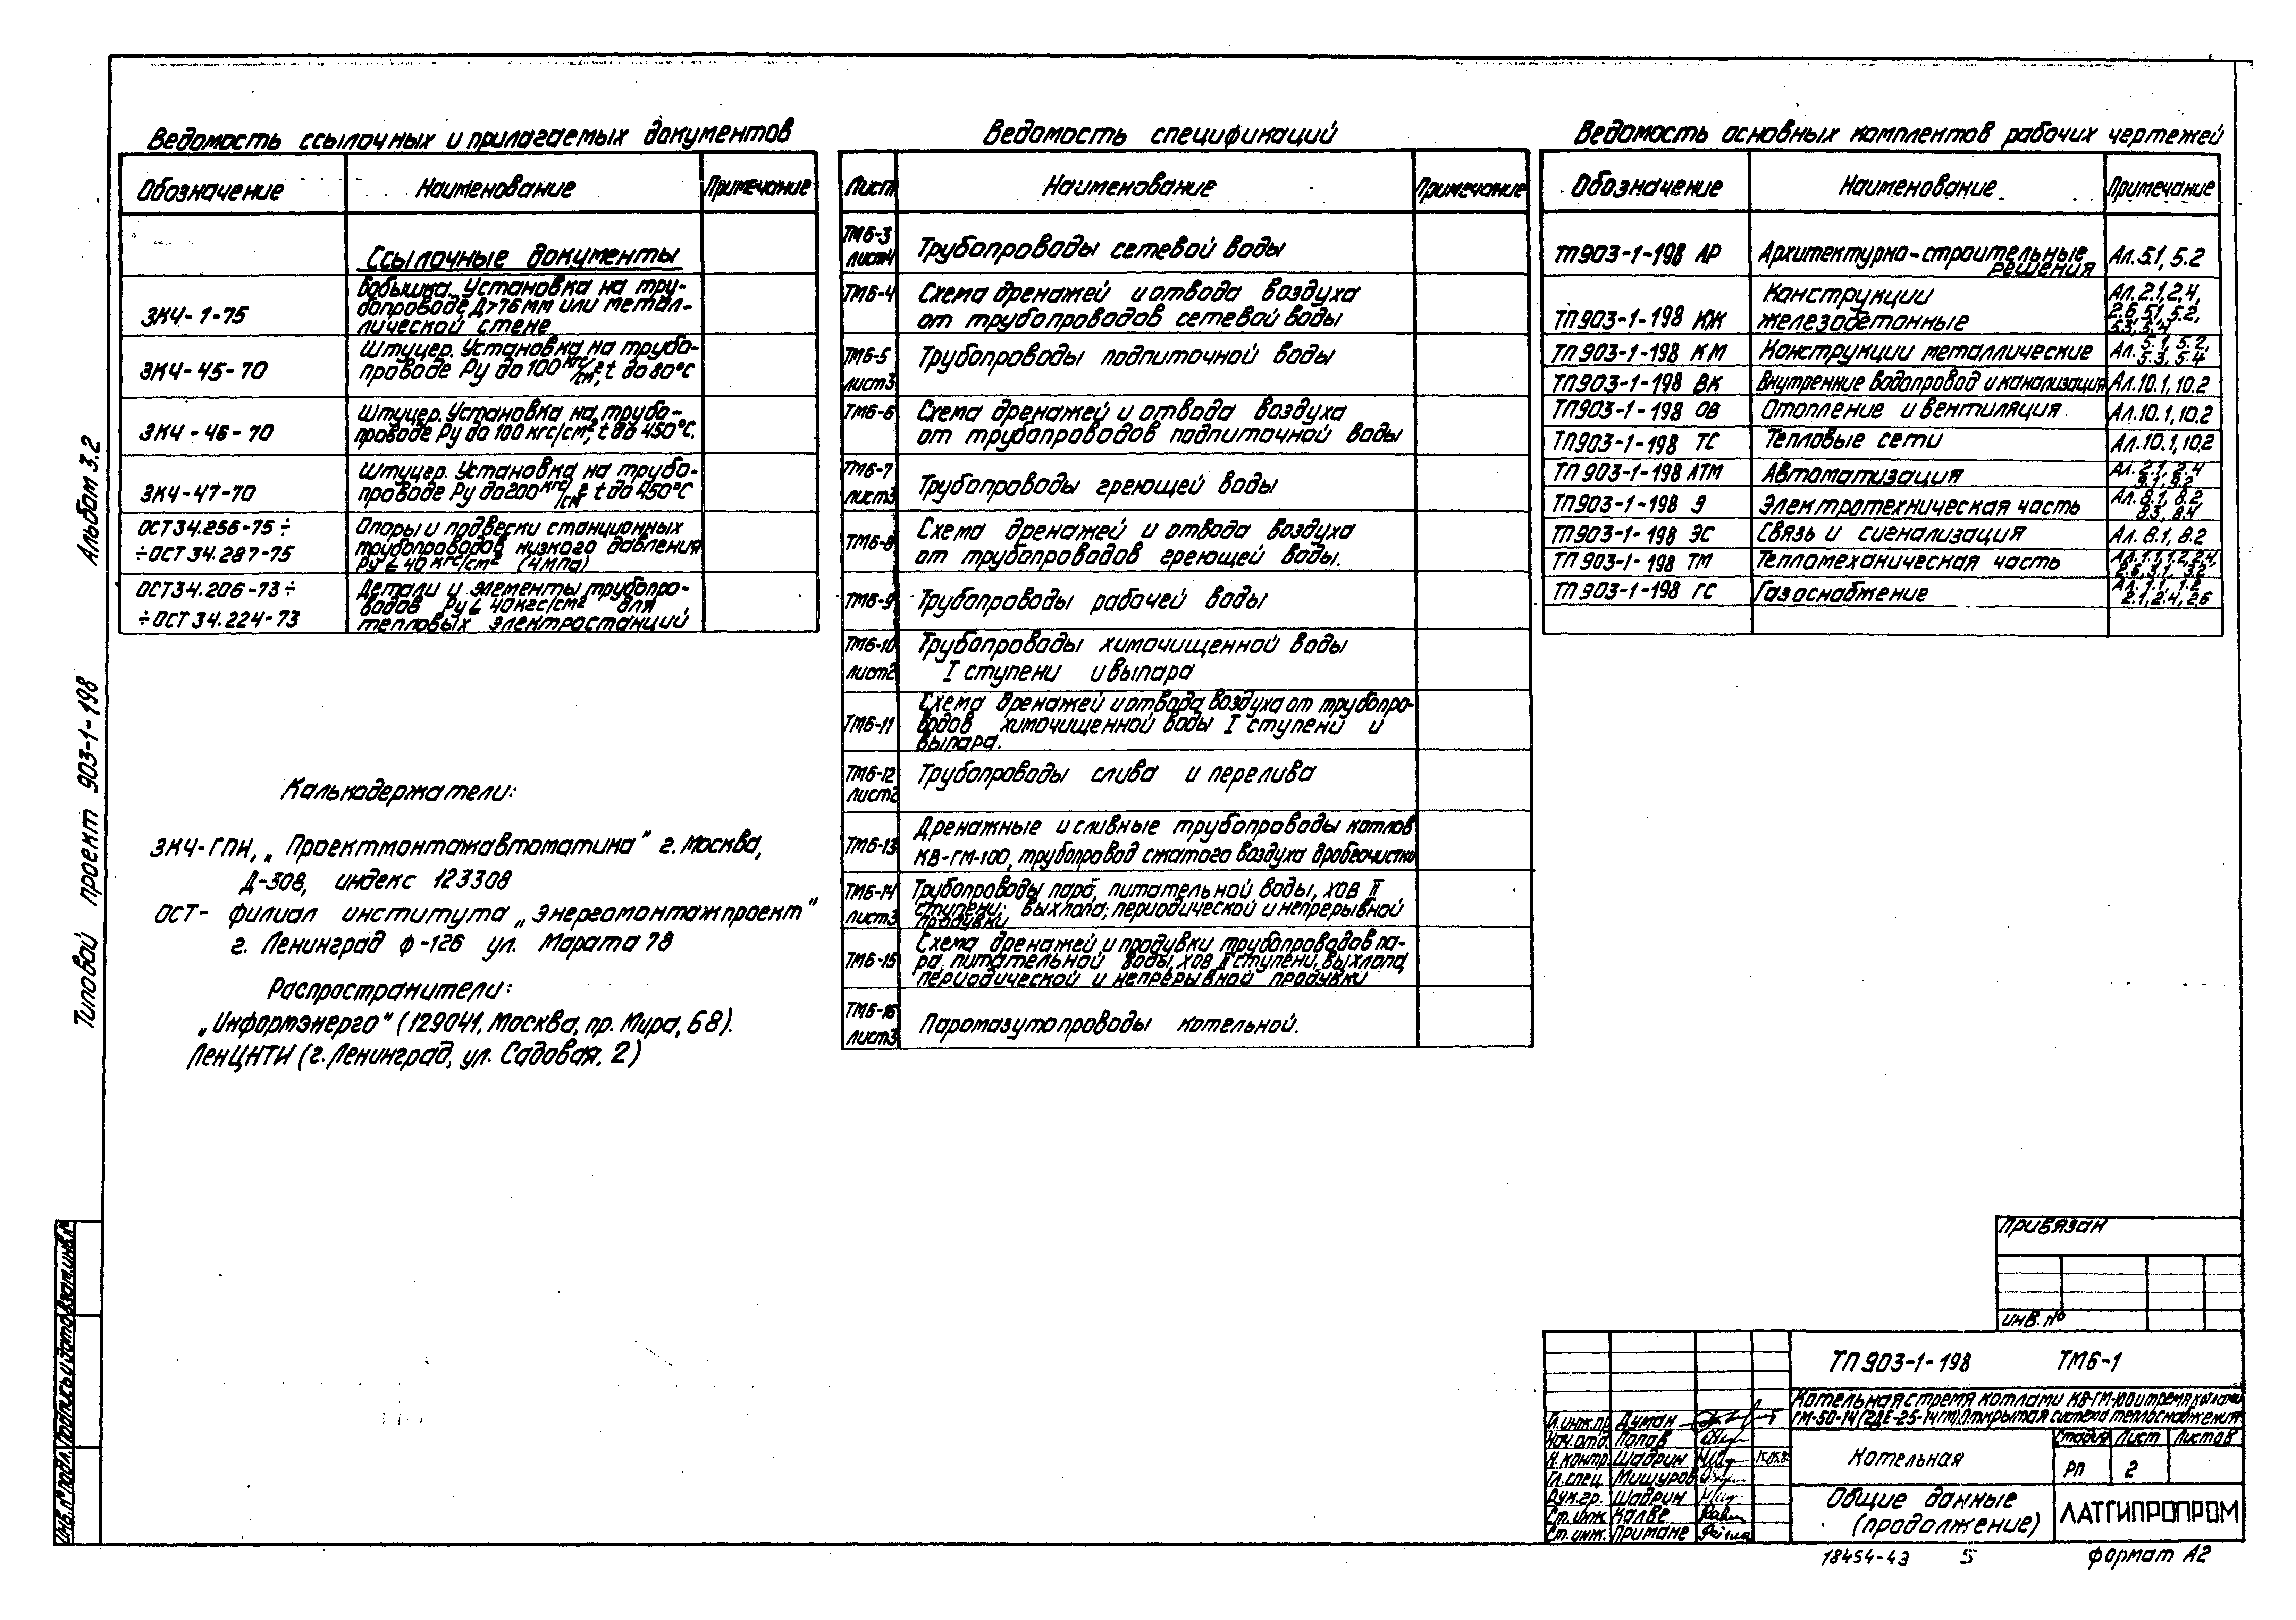 Ведомость ссылочных и прилагаемых документов
Обозначение Наименование Примечание
Ссылочные документы
ЗКЧ-1-75
Бобышка. Установка на тру-
бопроводе Д>76мм или метал-
лической стене
ЗКЧ-45-70
Штуцер. Установка на трубо-
проводе Ру до 100 кгс/см², t до 80°С
ЗКЧ-46-70
Штуцер. Установка на трубо-
проводе Ру до 100 кгс/см², t до 450°С.
ЗКЧ-47-70
Штуцер. Установка на трубо-
проводе Ру до 200 кгс/см², t до 450°С
ОСТ34.256-75 ÷
÷ОСТ 34.287-75
Опоры и подвески станционных
трубопроводов низкого давления
Ру ∠ 40 кгс/см² (4мпа)
ОСТ34.206-73÷
÷ОСТ 34.224-73
Детали и элементы трубопро-
водов Ру∠ 40кгс/см² для
тепловых электростанций
Калькодержатели:
ЗКЧ-ГПИ, „Проектмонтажавтоматика“ г. Москва,
Д-308, индекс 123308
ОСТ- филиал института „Энергомонтажпроект“
г. Ленинград Ф-126 ул. Марата 78
Распространители:
„Информэнерго“ (129041, Москва, пр. Мира, 68).
ЛенЦНТИ (г. Ленинград, ул. Садовая, 2)
Ведомость спецификаций
Лист Наименование Примечание
ТМ6-3
лист4
Трубопроводы сетевой воды
ТМ6-4
Схема дренажей и отвода воздуха
от трубопроводов сетевой воды
ТМ6-5
лист3
Трубопроводы подпиточной воды
ТМ6-6
Схема дренажей и отвода воздуха
от трубопроводов подпиточной воды
ТМ6-7
лист3
Трубопроводы греющей воды
ТМ6-8
Схема дренажей и отвода воздуха
от трубопроводов греющей воды.
ТМ6-9
Трубопроводы рабочей воды
ТМ6-10
лист2
Трубопроводы химочищенной воды
I ступени и выпара
ТМ6-11
Схема дренажей и отвода воздуха от трубопро-
водов химочищенной воды I ступени и
выпара.
ТМ6-12
лист2
Трубопроводы слива и перелива
ТМ6-13
Дренажные и сливные трубопроводы котлов
КВ-ГМ-100, трубопровод сжатого воздуха дробеочистки
ТМ6-14
лист3
Трубопроводы пара, питательной воды, ХОВ II
ступени; выхлопа; периодической и непрерывной
продувки
ТМ6-15
Схема дренажей и продувки трубопроводов па-
ра, питательной воды, хов II ступени, выхлопа,
периодической и непрерывной продувки
ТМ6-16
лист3
Паромазутопроводы котельной.
Ведомость основных комплектов рабочих чертежей
Обозначение Наименование Примечание
ТП903-1-198 АР Архитектурно-строительные Ал.5.1, 5.2
решения
ТП903-1-198 КЖ
Конструкции
железобетонные
Ал.2.1, 2.4,
2.6, 5.1, 5.2,
5.3, 5.4
ТП903-1-198 КМ Конструкции металлические Ал. 5.1, 5.2,
5.3, 5.4
ТП903-1-198 ВК Внутренние водопровод и канализация Ал.10.1, 10.2
ТП903-1-198 ОВ Отопление и вентиляция. Ал.10.1, 10.2
ТП903-1-198 ТС Тепловые сети Ал.10.1, 10.2
ТП 903-1-198 АТМ Автоматизация Ал. 2.1, 2.4
9.1, 9.2
ТП903-1-198 Э Электротехническая часть Ал. 8.1, 8.2
8.3, 8.4
ТП903-1-198 ЭС Связь и сигнализация Ал. 8.1, 8.2
ТП903-1-198 ТМ Тепломеханическая часть Ал.1.1, 1.2, 2.4,
2.6, 3.1, 3.2
ТП903-1-198 ГС Газоснабжение Ал. 1.1, 1.2
2.1, 2.4, 2.6
Типовой проект 903-1-198 Альбом 3.2
Инв.№подл. Подпись и дата Взам.инв.№
Привязан
инв. №
ТП903-1-198 ТМ6-1
Котельная с тремя котлами КВ-ГМ-100 и тремя котлами
ГМ-50-14 (2ДЕ-25-14ГМ). Открытая система теплоснабжения
Гл.инж.пр. Думан
Нач.отд. Попов
Н. контр. Шадрин
Гл. спец. Мишуров
Рук.гр. Шадрин
Ст. инж. Калве
Ст. инж. Примане
Котельная
Стадия Лист Листов
РП 2
Общие данные
(продолжение)
ЛАТГИПРОПРОМ
18454-43 5 формат А2